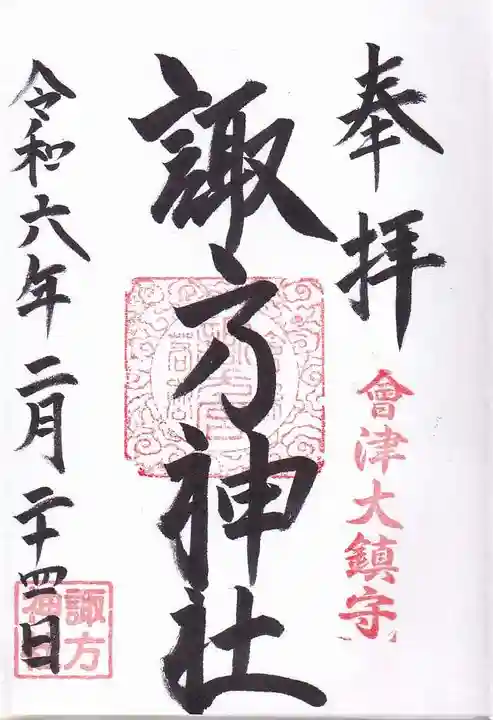 奉拝
會津大鎮守
諏方神社
令和六年二月二十四日
諏方
神社